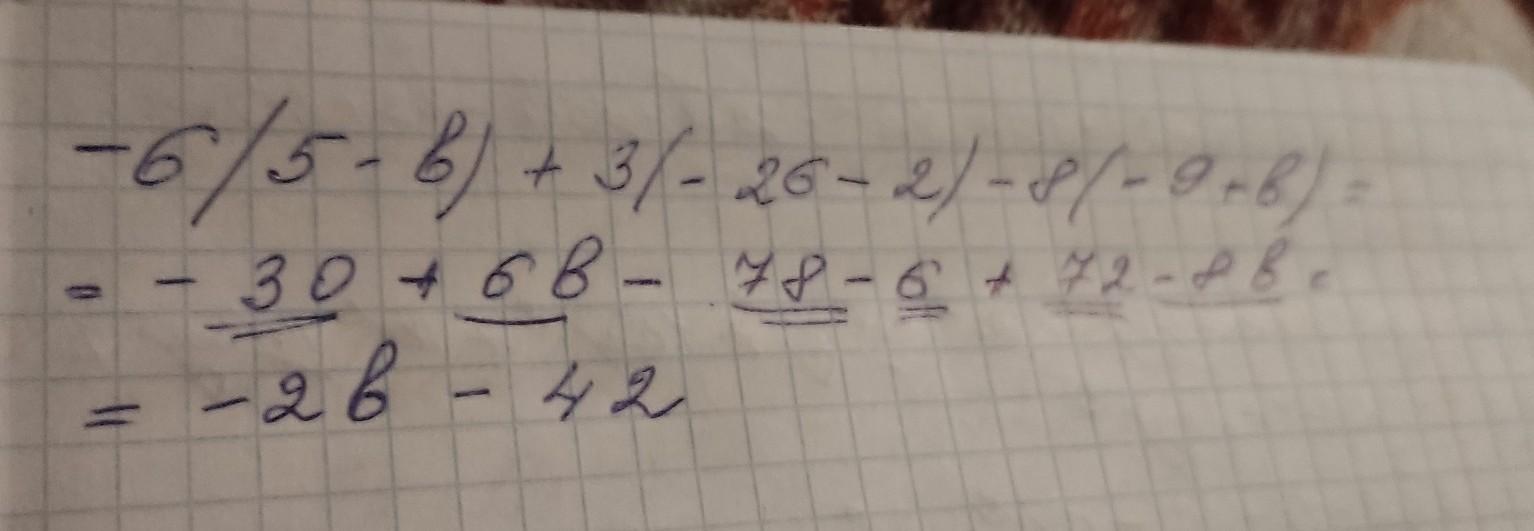 -6(5-в)+3(-26-2)-8(-9+в)=
=-30+6в-78-6+72-8в=
=-2в-42